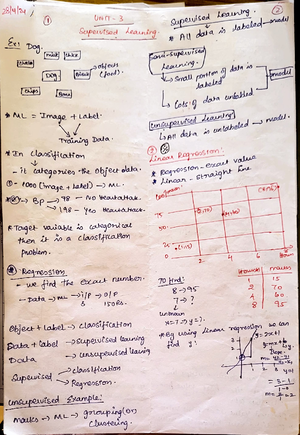 28/9/24
①
UNIT-3
Supervised Learning.
Ex: Dog.
milk
rice
chain
Dog
Block
Chips
objects
(Tool).
* ML = Image + Label.
Training Data.
* In Classification
- it categories the object data.
1000 (Image + Label) → ML.
BP
98 - No Heartattack.
198 - Yes Heartattack.
* Target variable is categorical
then it is a classification
problem.
* Regression.
- we find the exact number.
- Data → ML → I/P → O/P
3 150Rs.
Object + label → Classification
Data + label → supervised learning
Data → unsupervised learning
Supervised
classification
Regression.
Unsupervised Example:
Marks → ML → grouping (or)
Clustering.
②
Supervised Learning.
* All data is labeled → model
Semi-supervised
Learning.
→ Small portion of data is
labeled
→ Lots of data unlabelled
model
Unsupervised Learning
→ All data is unlabeled → model.
Linear Regression:
* Regression - exact value
* Linear - straight line
75
50
25
0
2 4 6 8
To find:
8 → 95
7 → ?
unknown
x=7 → y=?
x(hours) marks
1 15
2 70
4 60
8 95
* By using linear regression we can
find y:
y = 2x+1